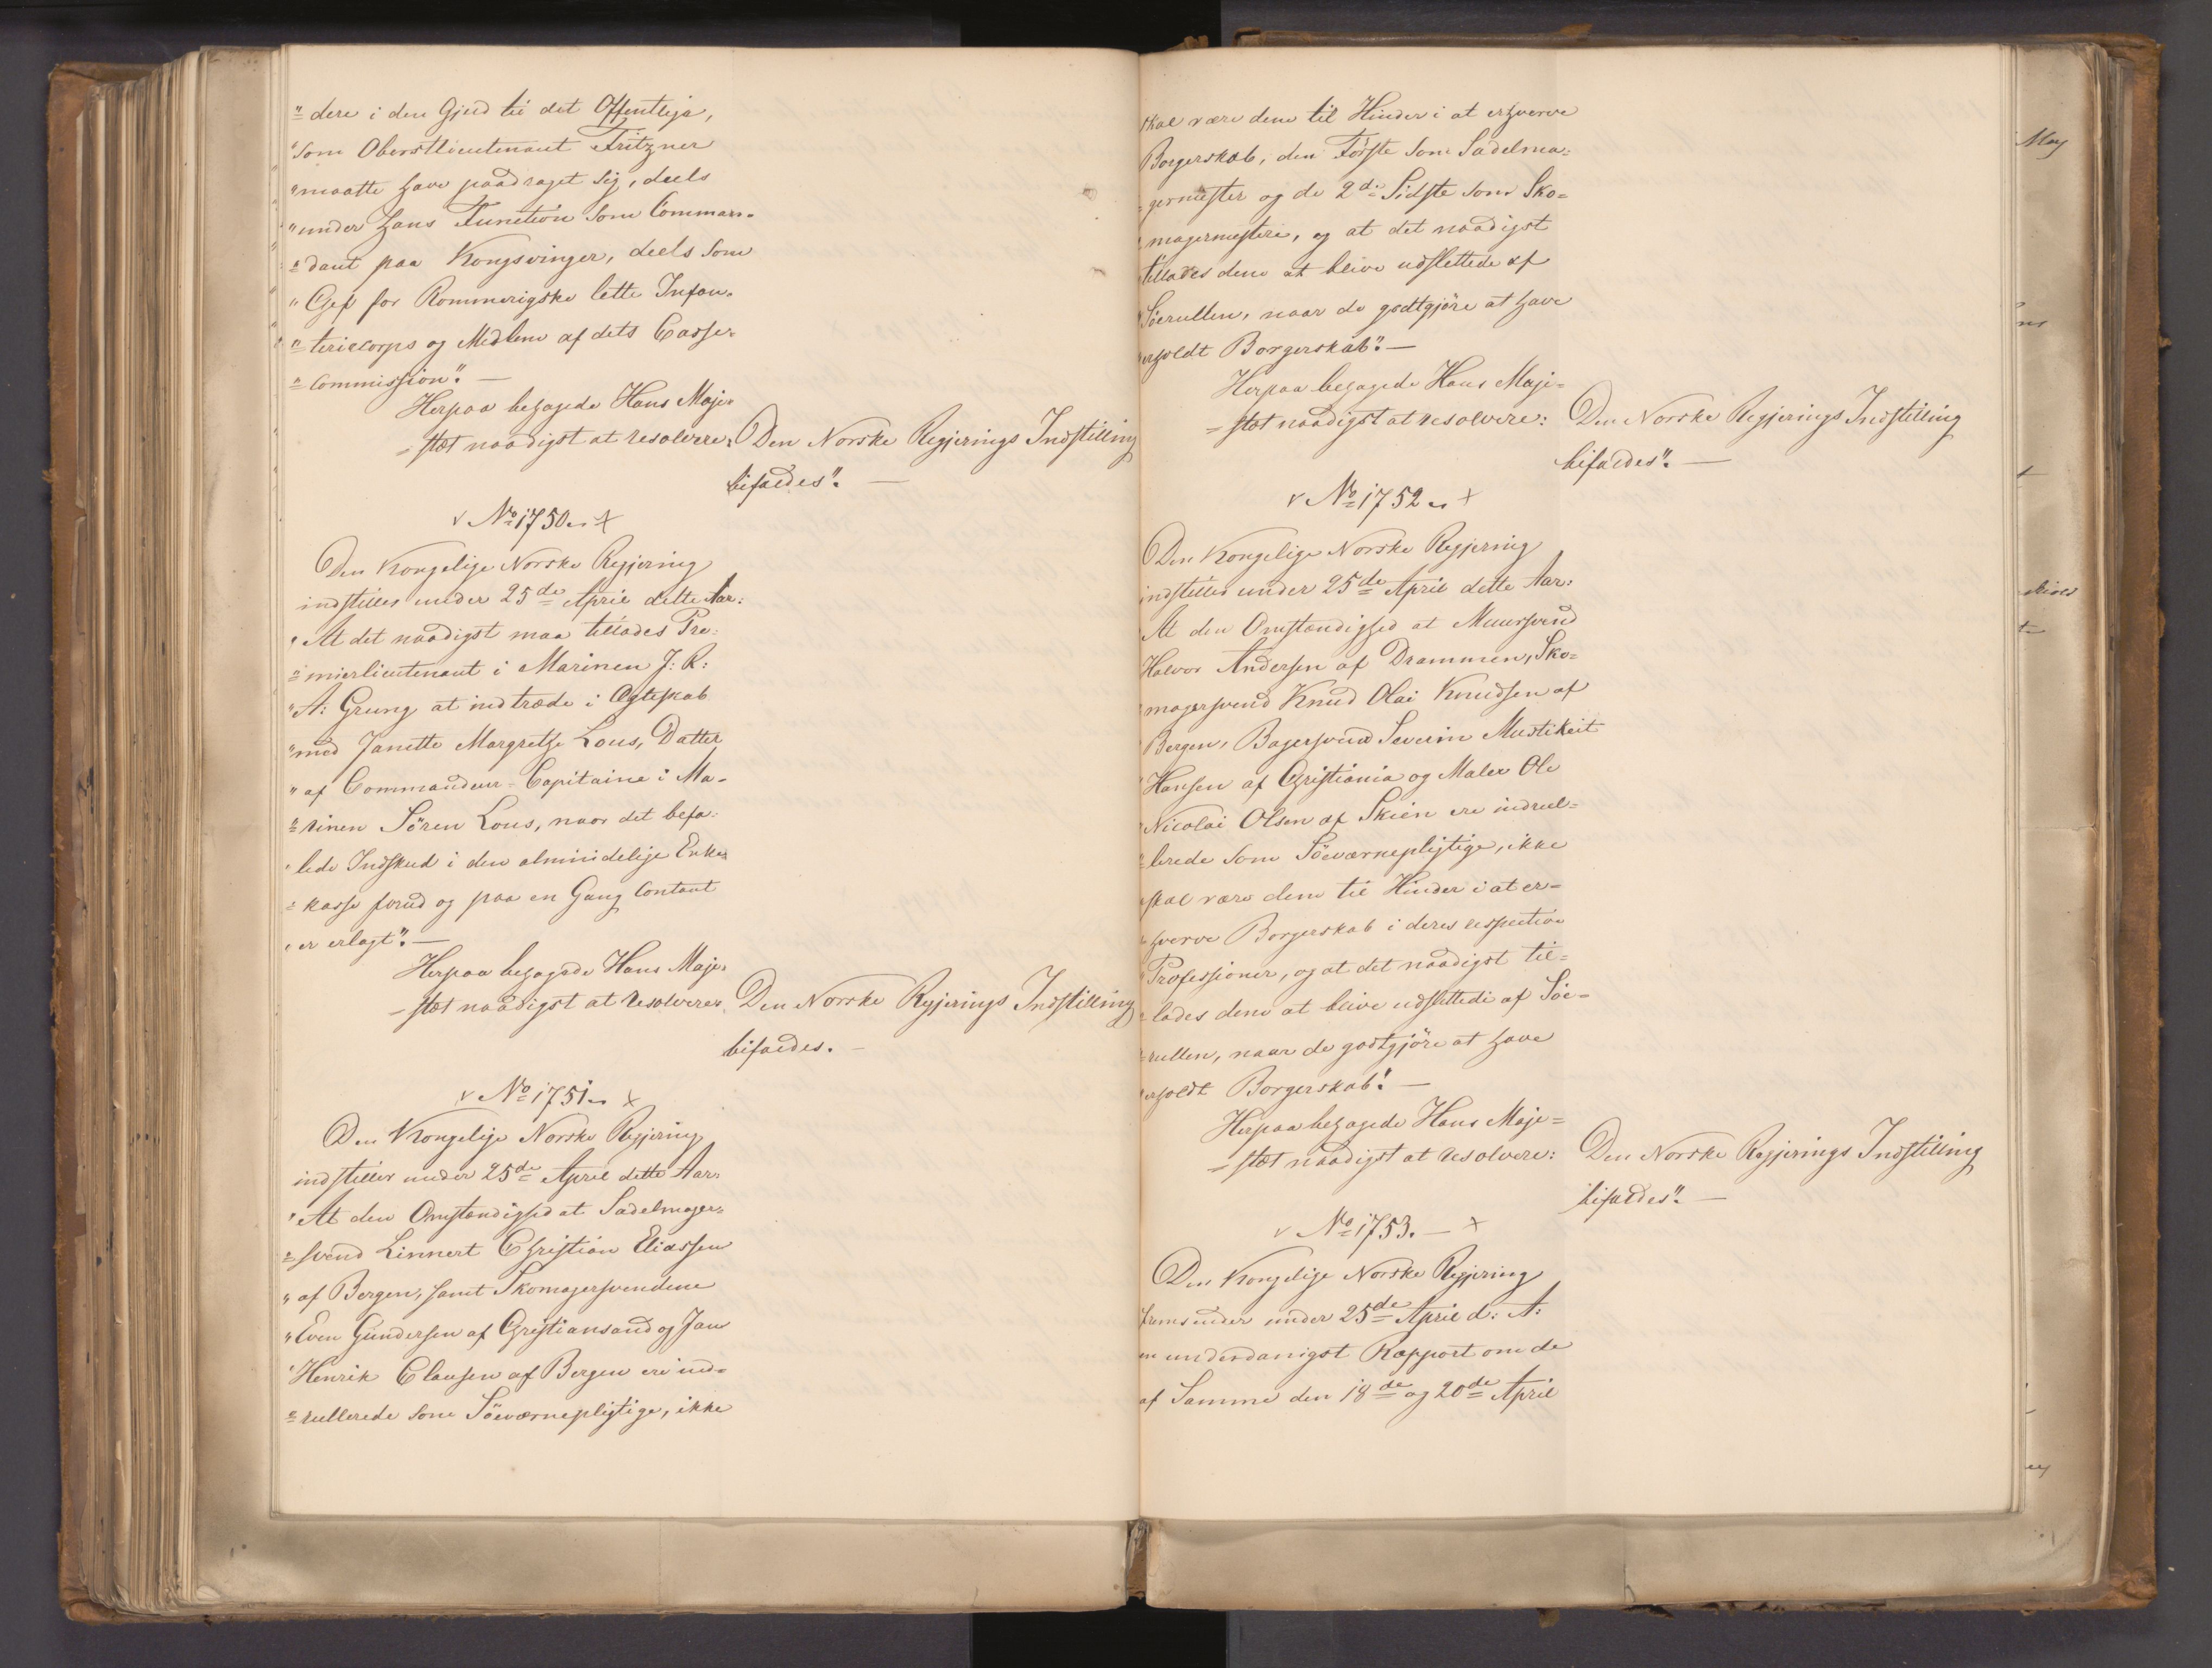 "= dere i den Gjæld til det Offentlige,
"som Oberstlieutenant Fritzner
"maatte have paadraget sig, deels
"under hans Function som Comman=
"= dant paa Kongsvinger, deels som
"Chef for Rommerigske lette Infan=
"= teriecorps og Medlem af dets Casse=
"= Commission". —
Herpaa behagede Hans Maje=
= stæt naadigst at resolvere: Den Norske Regjerings Indstilling
bifaldes". —
v No 1750. x
Den Kongelige Norske Regjering
indstiller under 25de April dette Aar:
"At det naadigst maa tillades Pre=
"= mierlieutenant i Marinen J: R:
"A: Grung at indtræde i Ægteskab
"med Janette Margrethe Lous, Datter
"af Commandeur-Capitaine i Ma=
"= rinen Sören Lous, naar det befa=
"lede Indskud i den almindelige Enke=
"= kasse forud og paa en Gang contant
"er erlagt". —
Herpaa behagede Hans Maje=
= stæt naadigst at resolvere: Den Norske Regjerings Indstilling
bifaldes. —
v No 1751. x
Den Kongelige Norske Regjering
indstiller under 25de April dette Aar:
"At den Omstændighed at Sadelmager=
"= svend Linnert Christian Eliassen
"af Bergen, samt Skomagersvendene
"Even Gundersen af Christiansand og Jan
"Henrik Clausen af Bergen ere ind=
"= rullerede som Söeværnepligtige, ikke
skal være dem til Hinder i at erhverve
Borgerskab, den Förste som Sadelma=
= germester og de 2de Sidste som Sko=
magermestere, og at det naadigst
tillades dem at blive udslettede af
"Söerullen, naar de godtgjöre at have
"erholdt Borgerskab". —
Herpaa behagede Hans Maje=
= stæt naadigst at resolvere: Den Norske Regjerings Indstilling
bifaldes". —
v No 1752. x
Den Kongelige Norske Regjering
indstiller under 25de April dette Aar:
At den Omstændighed at Muursvend
Halvor Andersen af Drammen, Sko=
magersvend Knud Olai Knudsen af
Bergen, Bagersvend Severin Mustikeit
"Hansen af Christiania og Maler Ole
"Nicolai Olsen af Skien ere indrul=
"= lerede som Söeværnepligtige, ikke
"skal være dem til Hinder i at er=
"= hverve Borgerskab i deres respective
"Professioner, og at det naadigst til=
"= lades dem at blive udslettede af Söe=
"= rullen, naar de godtgjöre at have
"erholdt Borgerskab". —
Herpaa behagede Hans Maje=
= stæt naadigst at resolvere: Den Norske Regjerings Indstilling
bifaldes". —
v No 1753. — x
Den Kongelige Norske Regjering
fremsender under 25de April d: A:
en underdanigst Rapport om de
af Samme den 18de og 20de April
May